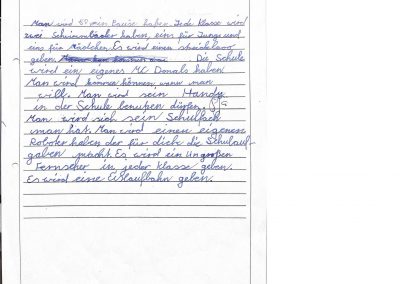 Man wird 50 min Pause haben. Jede Klasse wird
zwei Schwimmbäder haben, eins für Junge und
eins für Mädchen. Es wird einen
geben. Die Schule
wird ein eigenes MC Donals haben
Man wird kommen können, wann man
will. Man wird sein Handy
in der Schule benutzen dürfen.
Man wird sich sein Schulfach
man hat. Man wird einen eigenen
Roboter haben der für dich die Schulauf-
gaben macht. Es wird ein Un großen
Fernseher in jeder Klasse geben.
Es wird eine Eislaufbahn geben.